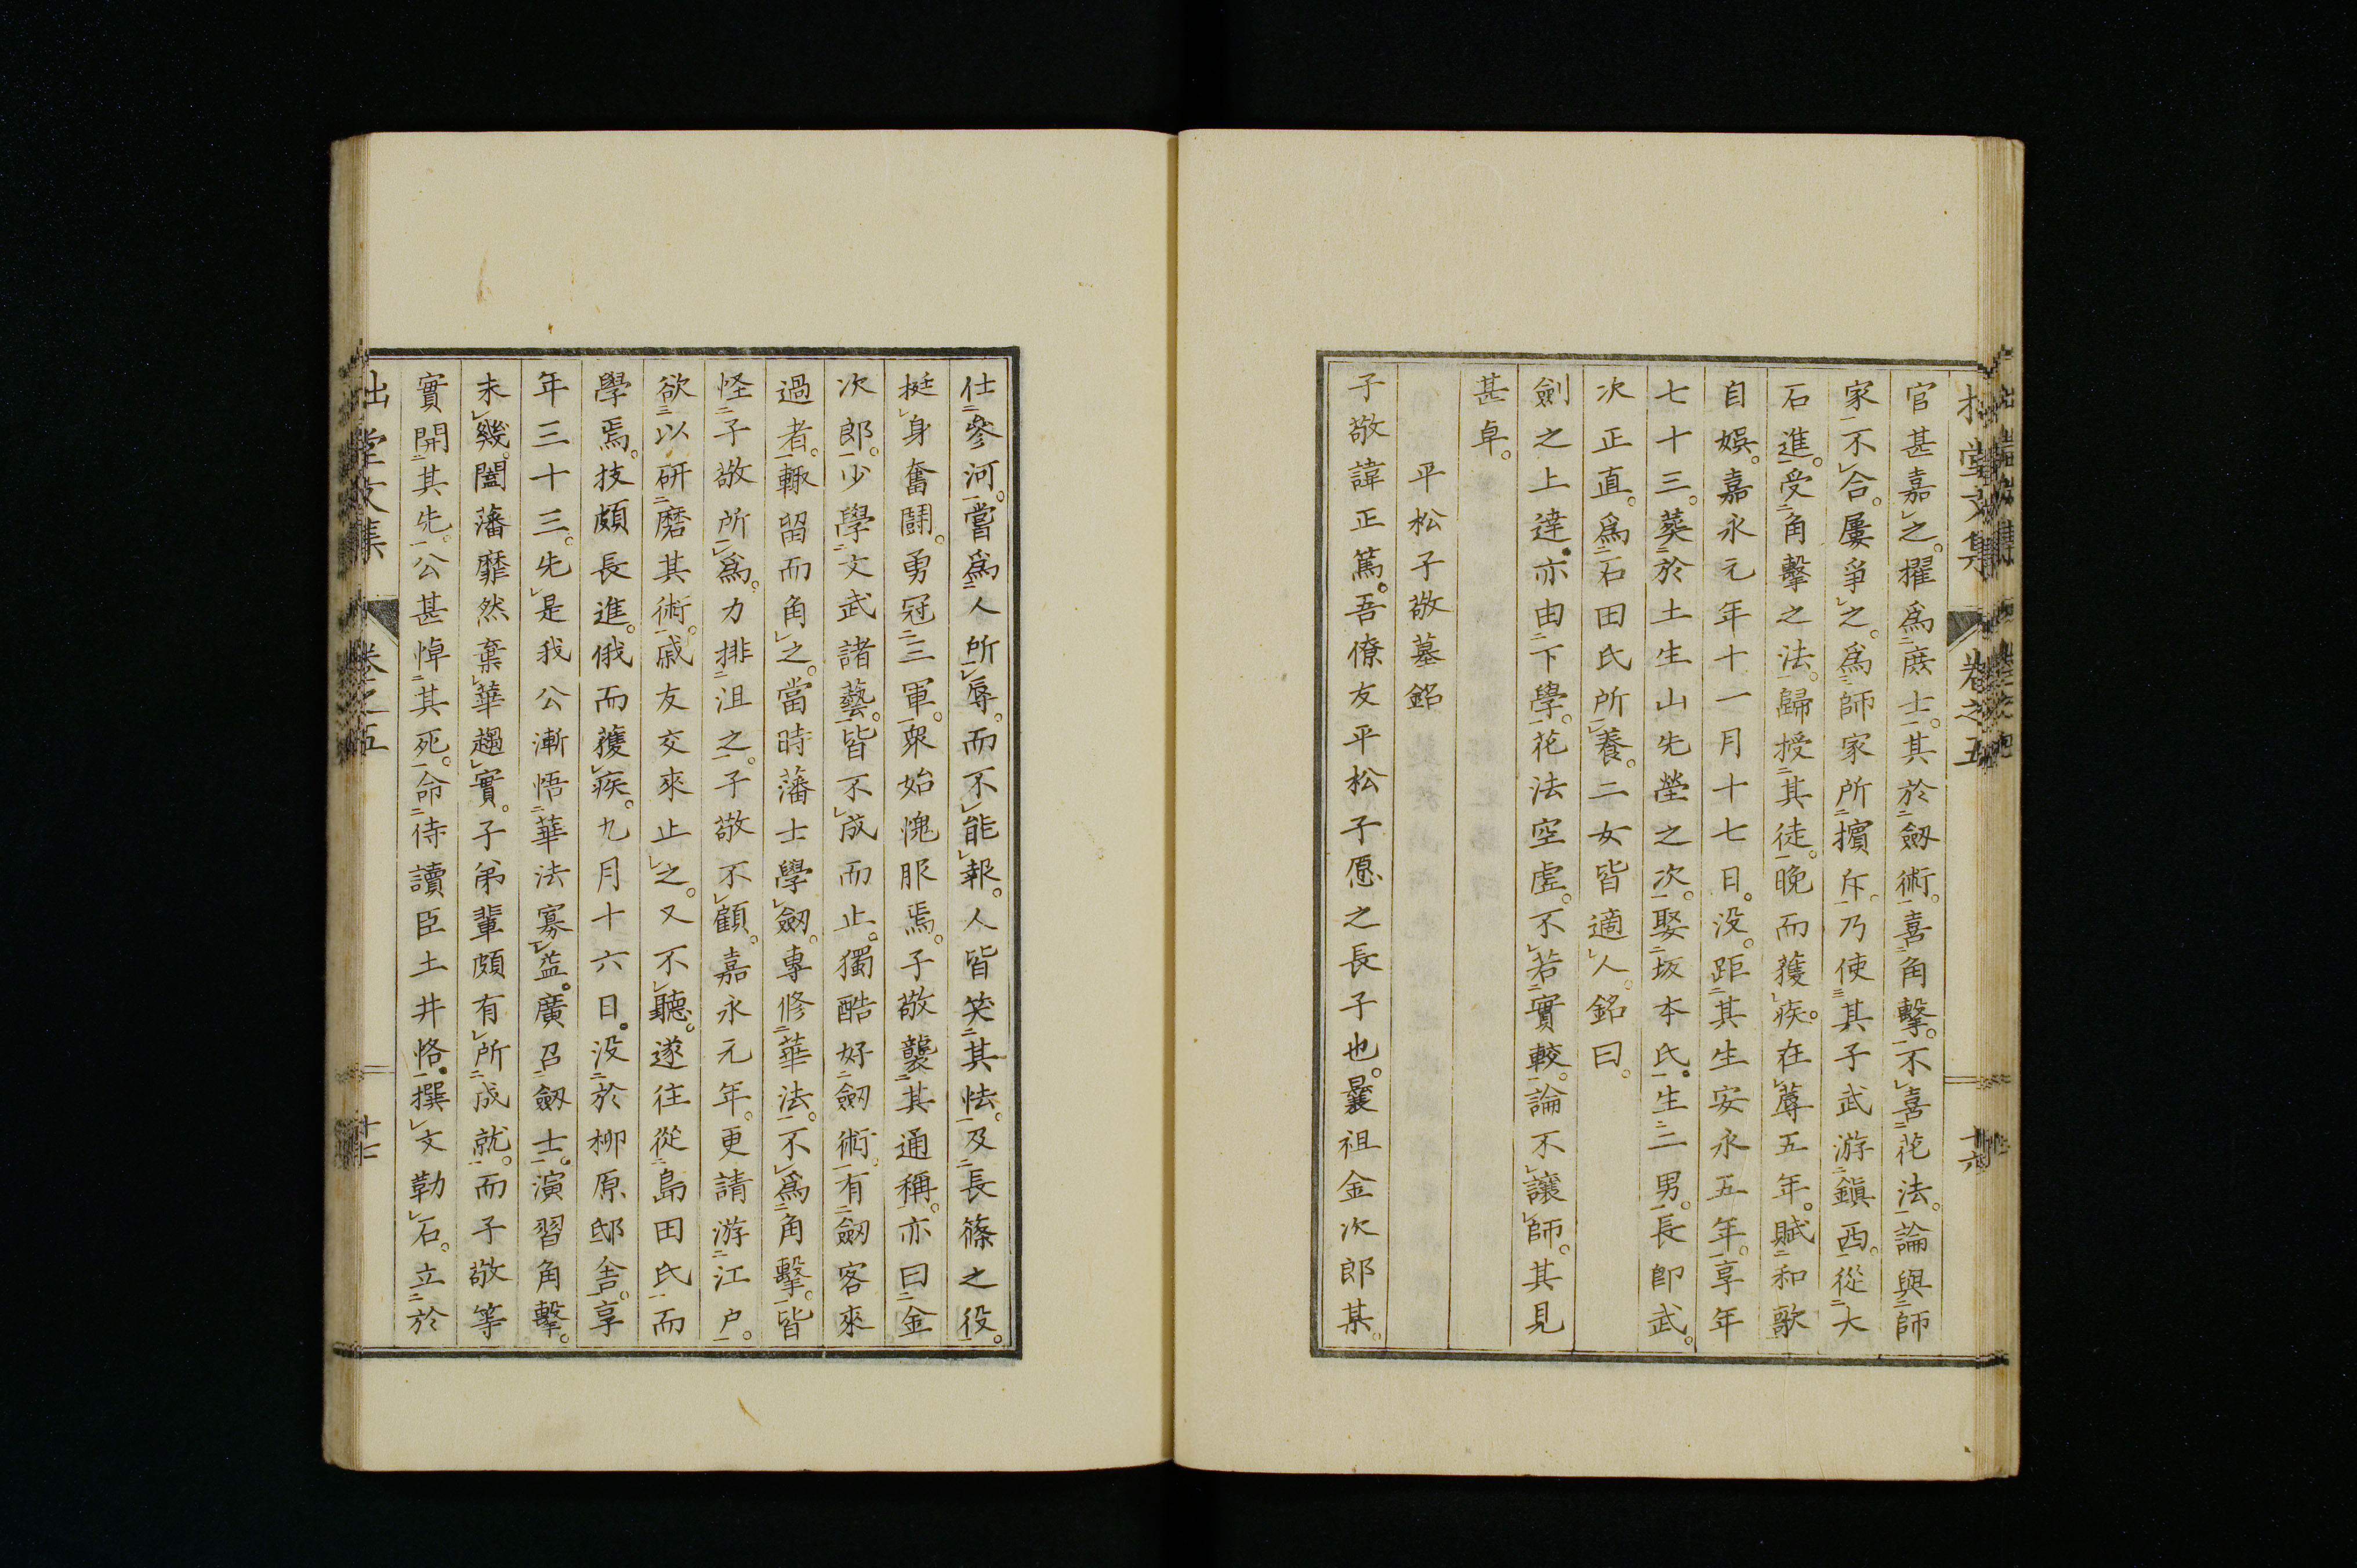 官甚嘉之。擢爲庶士。其於劔術。喜角擊。不喜花法。論與師
家不合。屢爭之。爲師家所擯斥。乃使其子武游鎭西。從大
石進。受角擊之法。歸授其徒。晚而獲疾。在蓐五年。賦和歌
自娯。嘉永元年十一月十七日。没。距其生安永五年。享年
七十三。葬於土生山先塋之次。娶坂本氏。生二男。長卽武。
次正直。爲石田氏所養。二女皆適人。銘曰。
劍之上達。亦由下學。花法空虛。不若實較。論不讓師。其見
甚卓。
平松子敬墓銘
子敬諱正篤。吾僚友平松子愿之長子也。曩祖金次郎某。
仕參河。嘗爲人所辱。而不能報。人皆笑其怯。及長篠之役。
挺身奮鬪。勇冠三軍。衆始愧服焉。子敬襲其通稱。亦曰金
次郎。少學文武諸藝。皆不成而止。獨酷好劔術。有劔客來
過者。輙留而角之。當時藩士學劔。專修華法。不爲角擊。皆
怪子敬所爲。力排沮之。子敬不顧。嘉永元年。更請游江户。
欲以研磨其術。戚友交來止之。又不聽。遂往從島田氏而
學焉。技頗長進。俄而獲疾。九月十六日。没於柳原邸舎。享
年三十三。先是我公漸悟華法寡益。廣召劔士。演習角擊。
未幾。闔藩靡然棄華趨實。子弟輩頗有所成就。而子敬等
實開其先。公甚悼其死。命侍讀臣土井恪。撰文勒石。立於